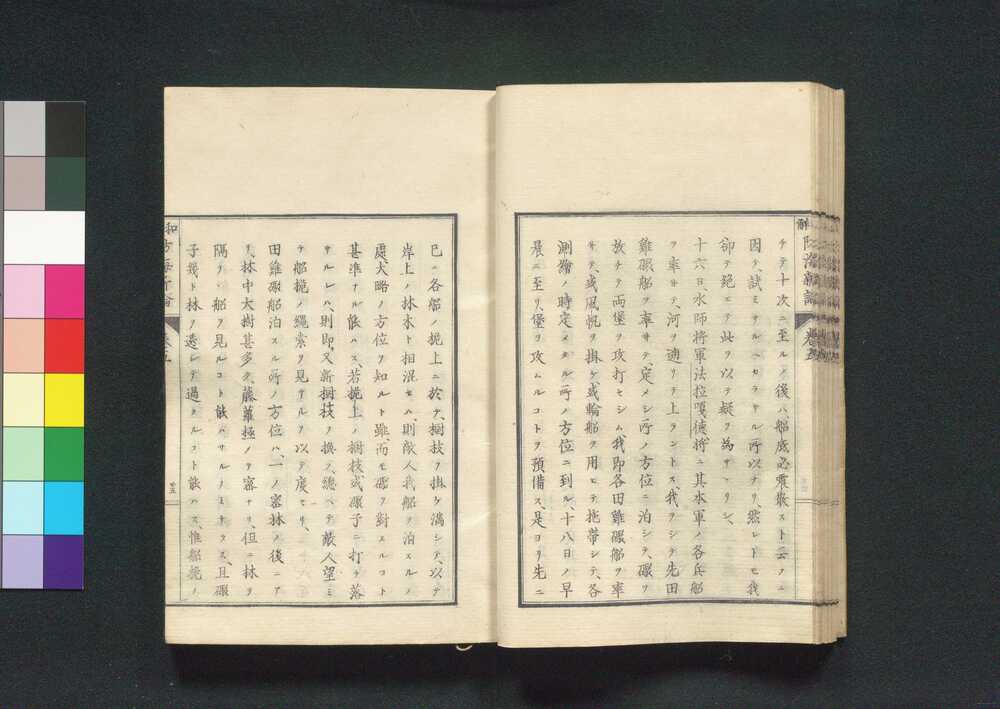 チテ十次ニ至ルノ後ハ、船底必震散スト云フニ
因テ、試ミサルヘカラサル所以ナリ、然レトモ我
卻テ絶エテ此ヲ以テ疑ヲ為サヽリシ、
十六日、水師将軍法拉嘎德将ニ其水軍ノ各兵船
ヲ率サテ、河ヲ遡リテ上ラントス、我ヲシテ先田
雞礮船ヲ率サテ定メシ所ノ方位ニ泊シテ、礮ヲ
放チテ両堡ヲ攻打セシム、我即各田雞礮船ヲ率
サテ、或風帆ヲ掛ケ、或輪船ヲ用ヒテ拖帯シテ、各
測繪ノ時定メタル所ノ方位ニ到ル、十八日ノ早
晨ニ至リ堡ヲ攻ムルコトヲ預備ス、是ヨリ先ニ
已ニ各船ノ桅上ニ於テ、樹技ヲ掛ケ満シテ、以テ
岸上ノ林木ト相混セハ、則敵人我船ヲ泊スルノ
處大略ノ方位ヲ知ルト雖、而モ礮ヲ對スルコト
甚準ナル能ハス、若桅上ノ樹技或礮子ニ打チ落
サルレハ、則即又新樹技ヲ換フ、總ヘテ敵人望ミ
テ船桅ノ繩索ヲ見サルヲ以テ度トセリ、
田雞礮船泊スル所ノ方位ハ、一ノ密林ノ後ニア
リ、林中大樹甚多ク、藤蘿極メテ密ナリ、但ニ林ヲ
隔テ、船ヲ見ルコト能ハサルノミナラス、且礮
子幾ト林ヲ透シテ過クルコト能ハス、惟船桅ノ